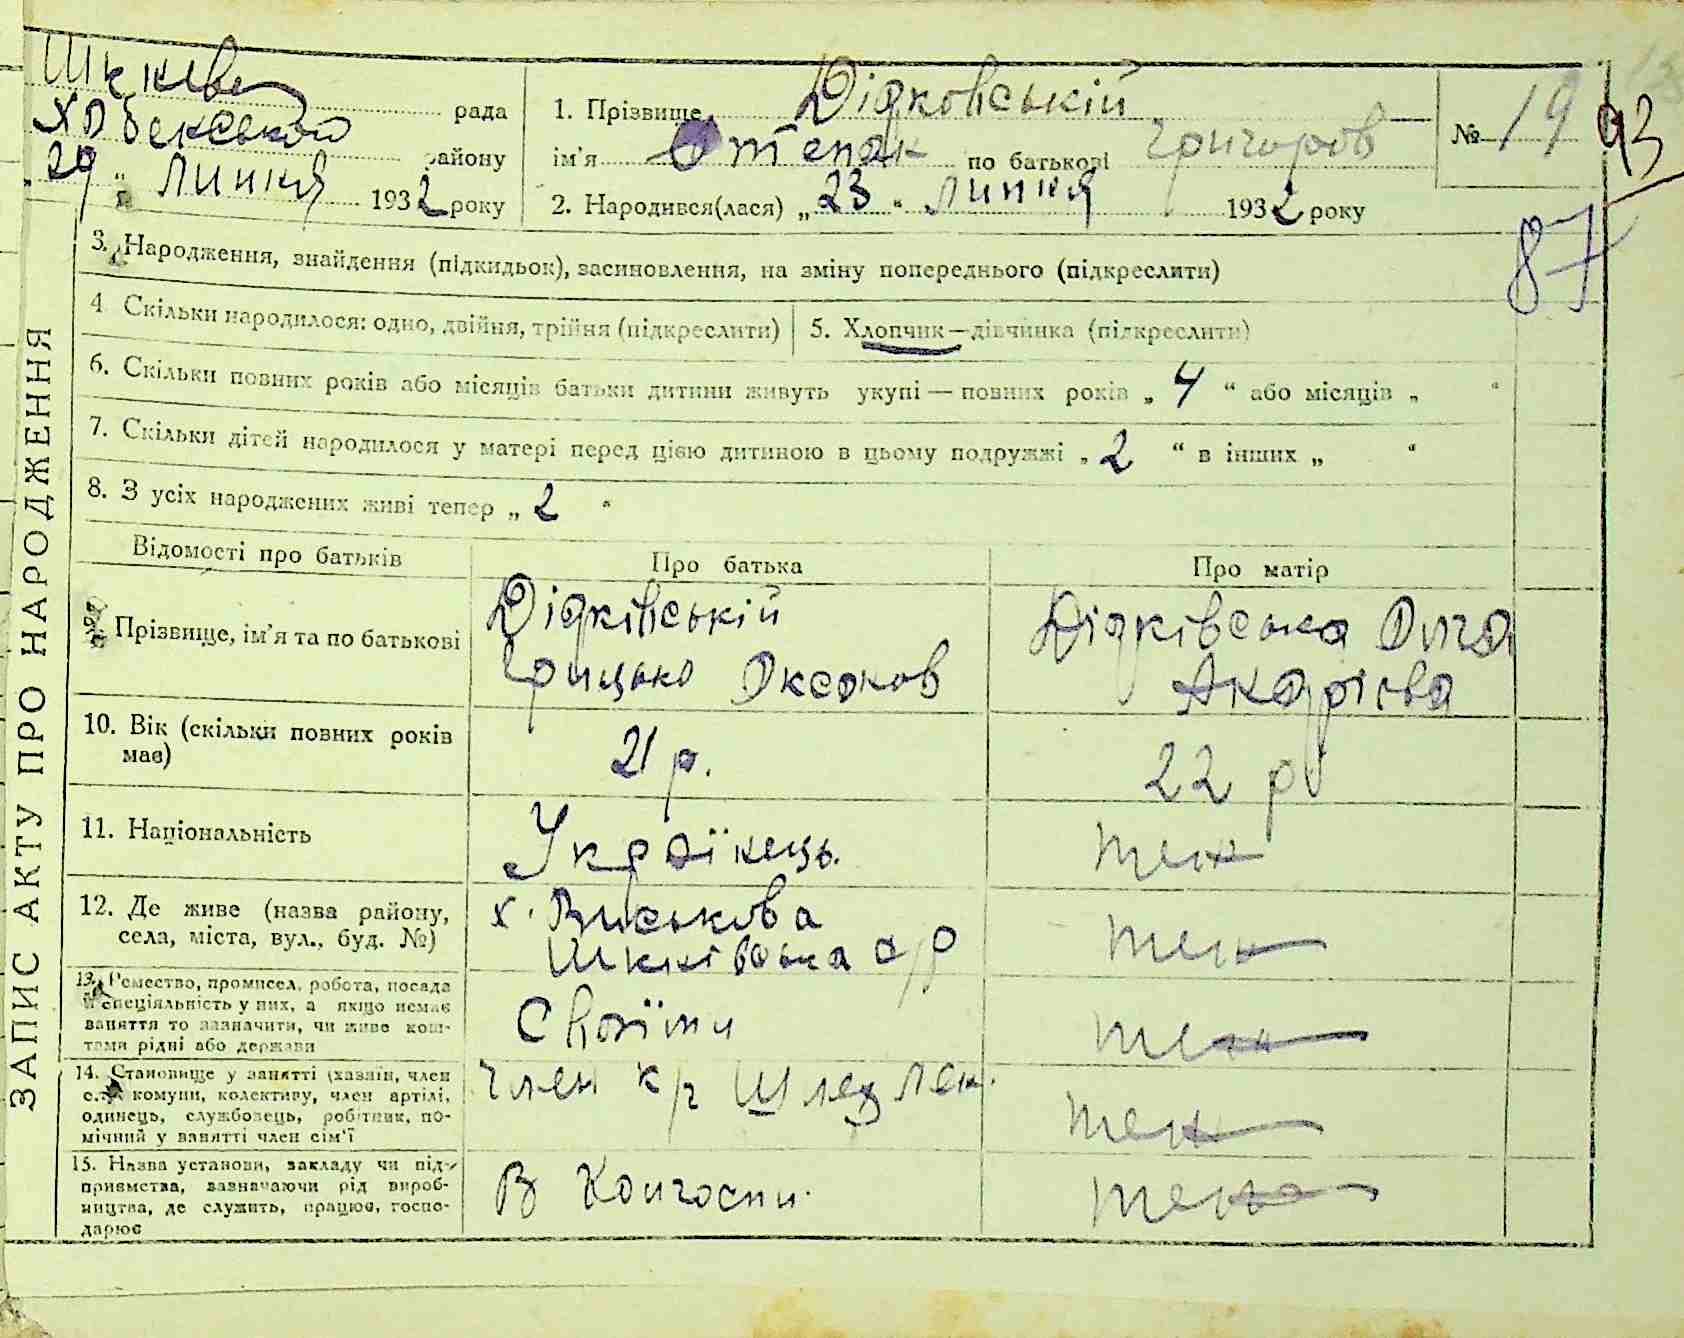 рада
району
29 „ Липня 1932 року
1. Прізвище Дідковській
ім’я Степан по батькові Григоров
2. Народився(лася) „23“ Липня 1932 року
№ 19
93
87
ЗАПИС АКТУ ПРО НАРОДЖЕННЯ
3. Народження, знайдення (підкидьок), засиновлення, на зміну попереднього (підкреслити)
4 Скільки народилося: одно, двійня, трійня (підкреслити)
5. Хлопчик—дівчинка (підкреслити)
6. Скільки повних років або місяців батьки дитини живуть укупі — повних років „ 4 “ або місяців „ “
7. Скільки дітей народилося у матері перед цією дитиною в цьому подружжі „ 2 “ в інших „ “
8. З усіх народжених живі тепер „ 2 “
Відомості про батьків
Про батька
Про матір
Прізвище, ім’я та по батькові
Дідківській
Грицько Оксонов
Дідківська Ольга
Андрієва
10. Вік (скільки повних років
має)
21 р.
22 р
11. Національність
Українець.
теж
12. Де живе (назва району,
села, міста, вул., буд. №)
х.
с/р
теж
13. Ремество, промисел, робота, посада
й спеціяльність у них, а якщо немає
заняття то зазначити, чи живе кош-
тами рідні або держави
Своїми
теж
14. Становище у занятті (хазяїн, член
с.-г. комуни, колективу, член артілі,
одинець, службовець, робітник, по-
мічний у занятті член сім’ї
член к/г
теж
15. Назва установи, закладу чи під-
приємства, зазначаючи рід вироб-
ництва, де служить, працює, госпо-
дарює
В Колгоспи.
теж